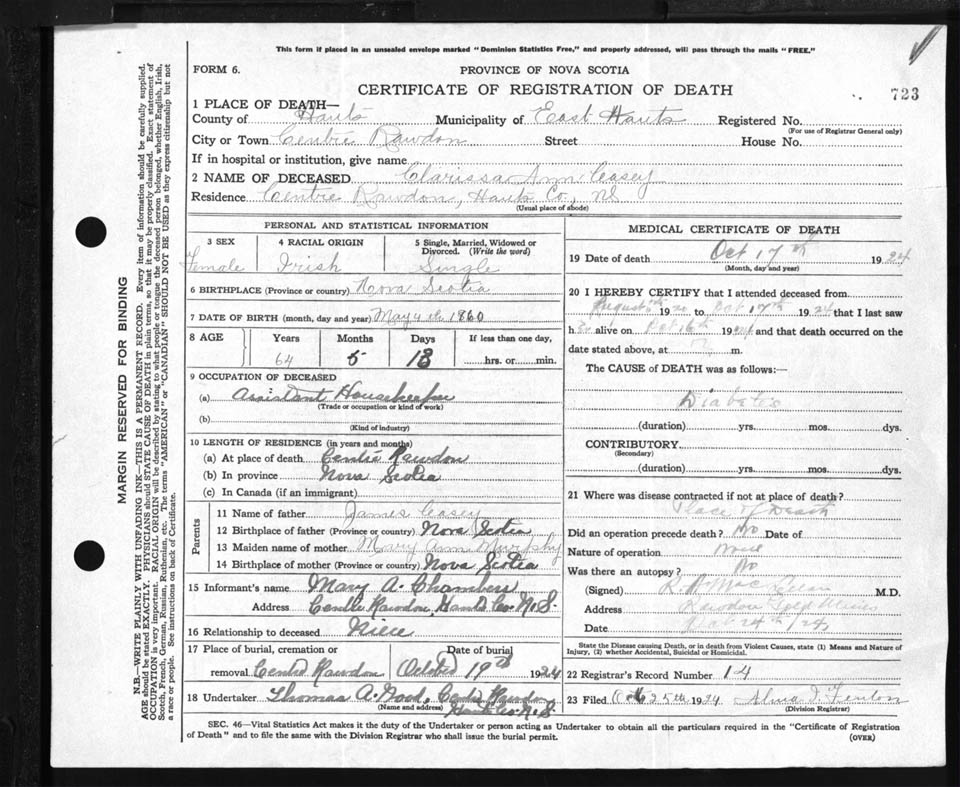 This form if placed in an unsealed envelope marked "Dominion Statistics Free," and properly addressed, will pass through the mails "FREE."
FORM 6.
PROVINCE OF NOVA SCOTIA
CERTIFICATE OF REGISTRATION OF DEATH
723
1 PLACE OF DEATH—
County of Hants Municipality of East Hants Registered No.
(For use of Registrar General only)
City or Town Centre Rawdon Street House No.
If in hospital or institution, give name
2 NAME OF DECEASED Clarissa Ann Casey
Residence Centre Rawdon, Hants Co., NS
(Usual place of abode)
PERSONAL AND STATISTICAL INFORMATION
3 SEX 4 RACIAL ORIGIN 5 Single, Married, Widowed or Divorced. (Write the word)
Female Irish Single
6 BIRTHPLACE (Province or country) Nova Scotia
7 DATE OF BIRTH (month, day and year) May 4th 1860
8 AGE Years Months Days If less than one day,
64 5 13 hrs. or min.
9 OCCUPATION OF DECEASED
(a) Assistant Housekeeper
(Trade or occupation or kind of work)
(b)
(Kind of industry)
10 LENGTH OF RESIDENCE (in years and months)
(a) At place of death Centre Rawdon
(b) In province Nova Scotia
(c) In Canada (if an immigrant)
Parents
11 Name of father James Casey
12 Birthplace of father (Province or country) Nova Scotia
13 Maiden name of mother Mary Ann Murphy
14 Birthplace of mother (Province or country) Nova Scotia
15 Informant's name Mary A. Chambers
Address Centre Rawdon, Hants Co. N.S.
16 Relationship to deceased Niece
17 Place of burial, cremation or Date of burial
removal Centre Rawdon 19th 1924
18 Undertaker Thomas A. Centre Rawdon
(Name and address) Hants Co. N.S
MEDICAL CERTIFICATE OF DEATH
19 Date of death Oct 17th 1924
(Month, day and year)
20 I HEREBY CERTIFY that I attended deceased from
August 19 to Oct 17th 1924 that I last saw
h er alive on Oct 16th 1924 and that death occurred on the
date stated above, at m.
The CAUSE of DEATH was as follows:
Diabetes
(duration) yrs. mos. dys.
CONTRIBUTORY
(Secondary)
(duration) yrs. mos. dys.
21 Where was disease contracted if not at place of death?
Place of Death
Did an operation precede death? No Date of
Nature of operation None
Was there an autopsy? No
(Signed) M.D.
Address Rawdon Gold Mines
Date Oct 24th /24
State the Disease causing Death, or in death from Violent Causes, state (1) Means and Nature of Injury, (2) whether Accidental, Suicidal or Homicidal.
22 Registrar's Record Number 14
23 Filed Oct 25th 1924 Alma Fenton
(Division Registrar)
SEC. 46—Vital Statistics Act makes it the duty of the Undertaker or person acting as Undertaker to obtain all the particulars required in the "Certificate of Registration
of Death" and to file the same with the Division Registrar who shall issue the burial permit.
(OVER)
MARGIN RESERVED FOR BINDING
N.B.—WRITE PLAINLY WITH UNFADING INK—THIS IS A PERMANENT RECORD. Every item of information should be carefully supplied.
AGE should be stated EXACTLY. PHYSICIANS should STATE CAUSE OF DEATH in plain terms, so that it may be properly classified. Exact statement of
OCCUPATION is very important. RACIAL ORIGIN will be described by stating to what people or tongue the deceased person belonged, whether English, Irish,
Scotch, French, German, Russian, Ruthenian, etc. The terms "AMERICAN" or "CANADIAN" SHOULD NOT BE USED as they express citizenship but not
a race or people. See instructions on back of Certificate.